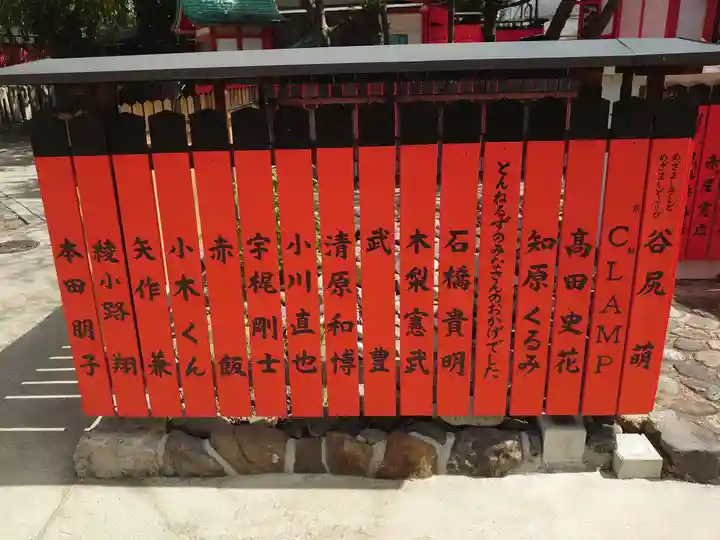 めざましテレビ
谷尻 萌
CLAMP
高田史花
知原くるみ
とんねるずのみなさんのおかげでした
石橋貴明
木梨憲武
武 豊
清原和博
小川直也
宇梶剛士
赤 飯
小木くん
矢作 兼
綾小路 翔
本田朋子